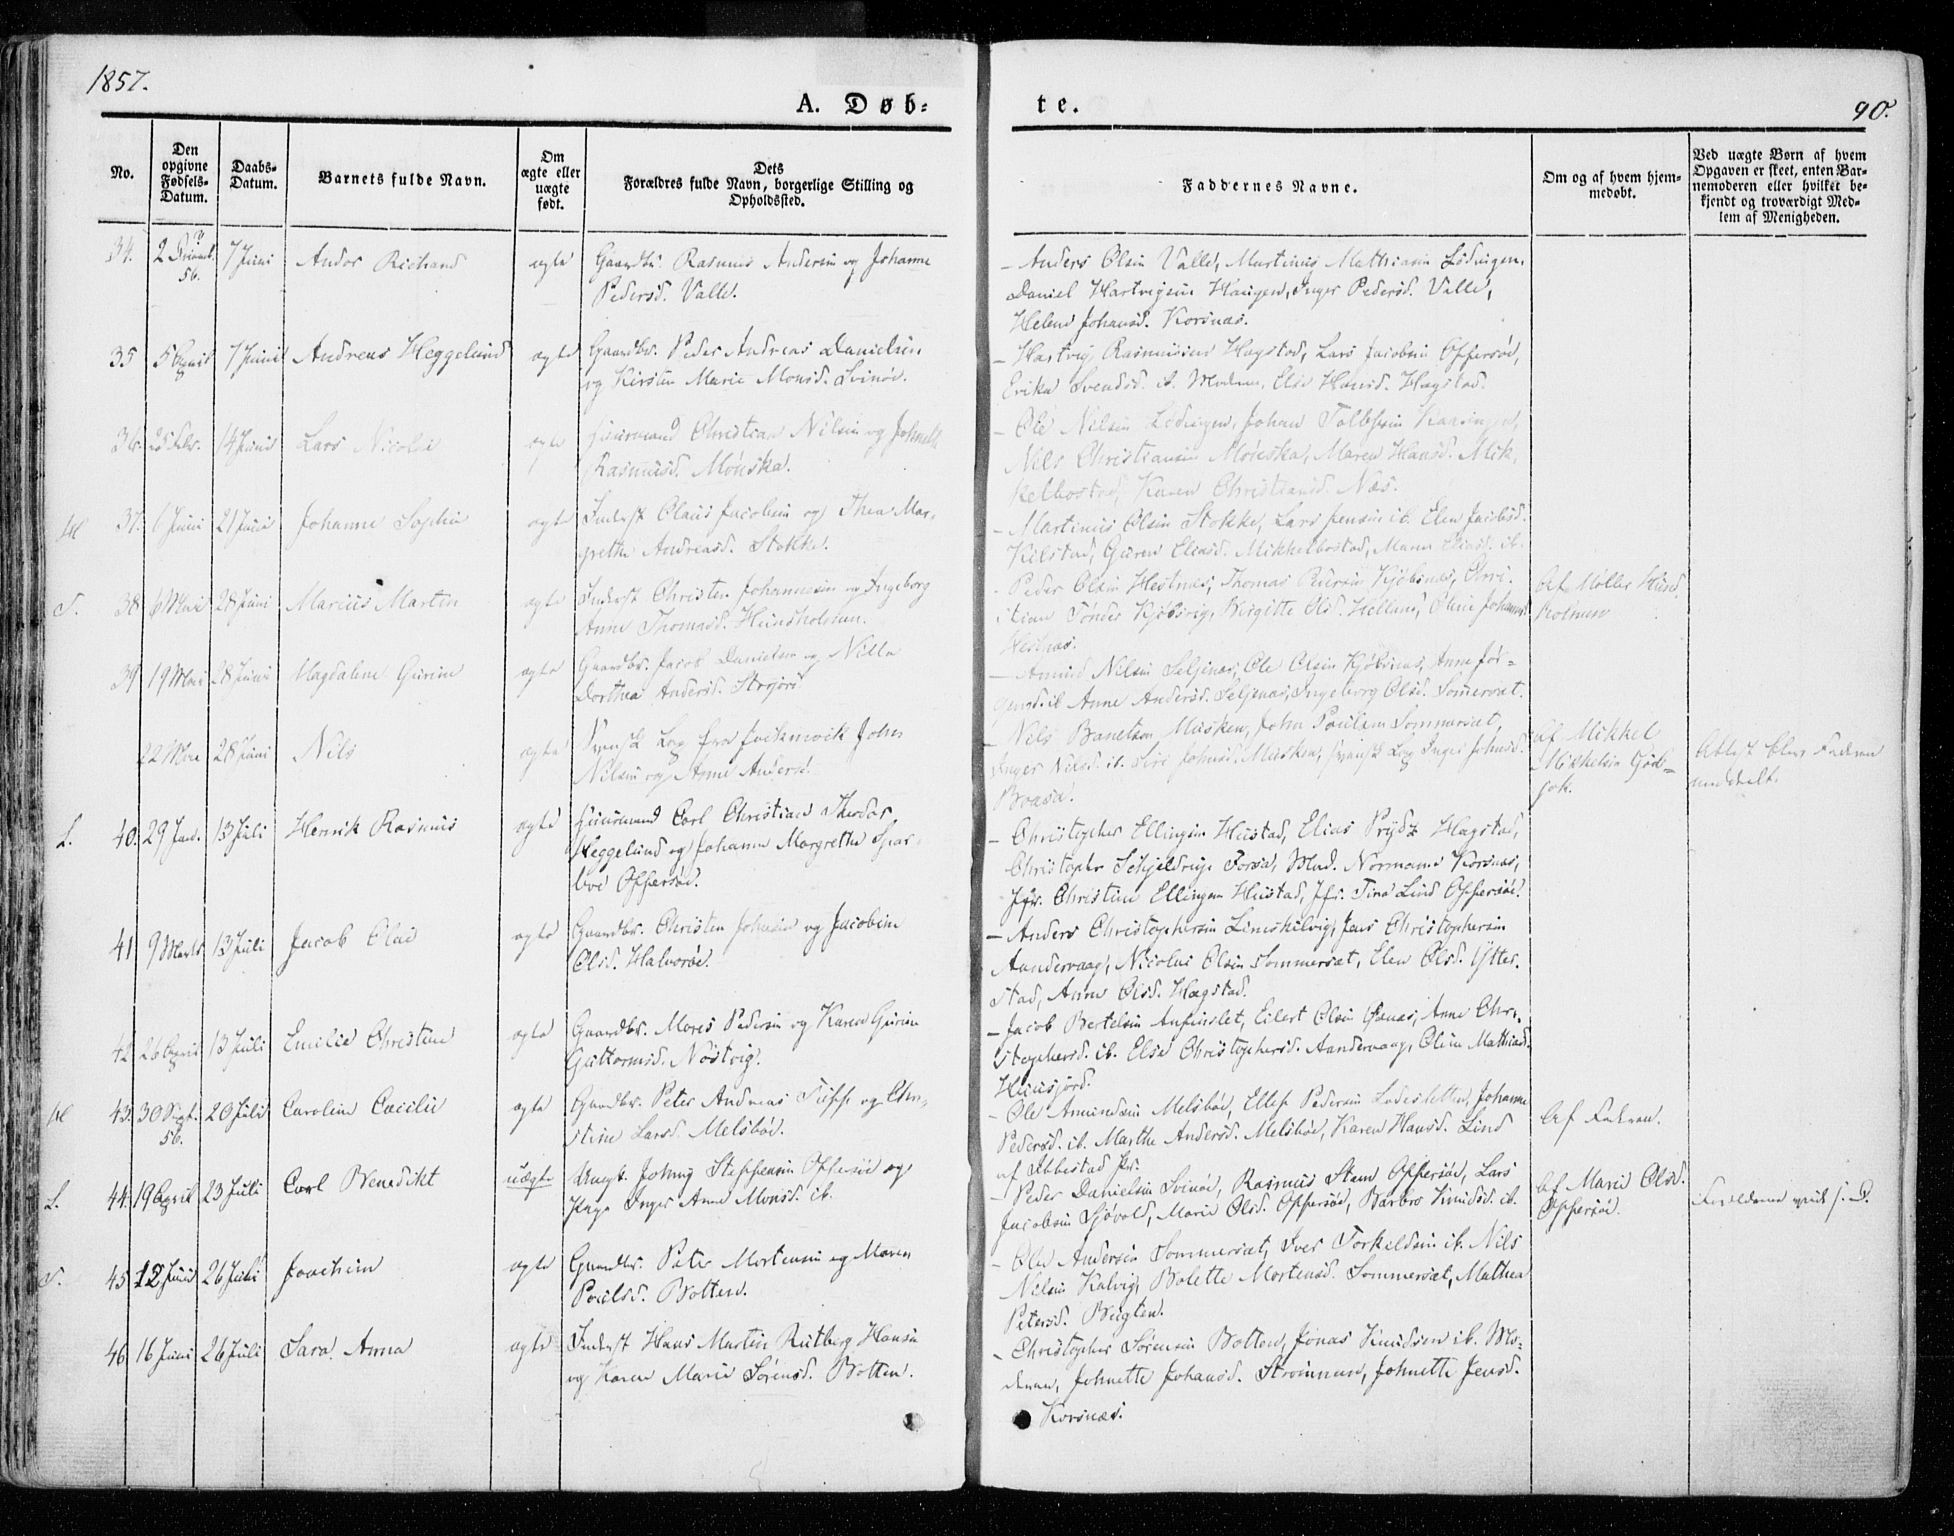 1857.
A. Døb-
te.
90.
No.
Den opgivne Fødsels-Datum.
Daabs-Datum.
Barnets fulde Navn.
Om ægte eller uægte født.
Dets Forældres fulde Navn, borgerlige Stilling og Opholdssted.
Faddernes Navne.
Om og af hvem hjem-medøbt.
Ved uægte Børn af hvem Opgaven er skeet, enten Bar-nemoderen eller hvilket be-kjendt og troværdigt Med-lem af Menigheden.
34. 56. 7 Juni Andor Richard ægte Gaardbr. Rasmus Andersen og Johanne
Pedersd. Valle.
- Anders Olsen Valle, Martinus Mathiasen Lødingen,
Daniel Hartvigsen Haugen, Inger Pedersd. Valle,
Helene Johansd. Korsnæs.
35 5 April 7 Juni Andreas Heggelund ægte Gaardbr. Peder Andreas Danielsen
og Kirsten Marie Monsd. Svinøe.
- Hartvig Rasmussen Hagstad, Lars Jacobsen Offersøe,
Erika Svendsd. Else Hansd. Hagstad.
36. 25 Febr. 14 Juni Lars Nicolai ægte Huusmand Christian Nilsen og
Rasmusd. Møuska.
- Ole Nilsen Lødingen, Johan
Nils Christiansen Møuska, Maren Hansd. Mik-
kelbostad, Karen Christiansd. Næs.
M 37. 1 Juni 21 Juni Johanne Sophie ægte Inderst Claus Jacobsen og Thea Mar-
grethe Andreasd. Stokke.
- Martinus Olsen Stokke, Lars Jensen ib. Elen Jacobsd.
Kilstad, Guren Eliasd. Mikkelbostad, Maren Eliasd. ib.
T. 38 6 Mai 28 Juni Marius Martin ægte Inderst Christen Johannesen og Ingeborg
Anne Thomasd. Huusholmen.
- Peder Olsen Hestnæs, Thomas Kjøbsnæs, Chri-
stian Tønder Kjøbsvig, Birgitte Olsd. Oline Johansd.
Hestnæs.
Af Møller
39 19 Mai 28 Juni Magdalene Gurine ægte Gaardbr. Jacob Danielsen og Nille
Dorthea Andersd.
- Amund Nilsen Seljenæs, Ole Olsen Kjøbsnæs, Anne Jør-
gensd. ib. Anne Andersd. Seljenæs, Ingeborg Olsd. Sommerset.
22 Mai 28 Juni Nils ægte Svensk Lap fra Jockmock John
Nilsen og Anne Andersd.
- Nils Musken, John Paulsen Sommerset,
Inger Nilsd. ib. Siri Johnsd. Musken, svensk Lap Inger Johnsd.
Af Mikkel
Mikkelsen
meddelt.
L. 40. 29 Jan. 13 Juli Henrik Rasmus ægte Huusmand Carl Christian Theodor
Heggelund og Johanne Margrethe Spar-
boe Offersøe.
- Christopher Ellingsen Hustad, Elias Prydz Hagstad,
Christopher Schjeldrup Forsa, Mad. Normann Korsnæs,
Jfr. Christine Ellingsen Hustad, Jfr. Tina Lind Offersøe.
41 9 Marts 13 Juli Jacob Olai ægte Gaardbr. Christen Johnsen og Jacobine
Olsd. Halvorøe.
- Anders Christophersen Jens Christophersen
Aandervaag, Nicolai Olsen Sommerset, Elen Olsd. Ytter-
stad, Anne Olsd. Hagstad.
42. 26 April 13 Juli Emilie Christine ægte Gaardbr. Mons Pedersen og Karen Gurine
Guttormsd. Nøstvig.
- Jacob Bertelsen Eilert Olsen Anne Chri-
stophersd. ib. Else Christophersd. Aandervaag, Oline Mathiasd.
Huusjord.
M 43. 30 Sept. 56. 20 Juli Caroline Cæcilie ægte Gaardbr. Peter Andreas og Chri-
stine Larsd. Melsbøe.
- Ole Amundsen Melsbøe, Ellef Pedersen Johanne
Pedersd. ib. Marthe Andersd. Melsbøe, Karen Hansd. Lind
af Ibbestad Pr.
Af Faderen.
L. 44. 19 April 23 Juli Carl Benedikt uægte Ungk. Johnny Steffensen Offersøe og
Pige Inger Anne Monsd. ib.
- Peder Danielsen Svinøe, Rasmus Stam Offersøe, Lars
Jacobsen Sjøvold, Marie Olsd. Offersøe, Barbro Knudsd. ib.
Af Marie Olsd.
Offersøe.
Forældrene
T. 45 12 Juni 26 Juli Joachim ægte Gaardbr. Peter Mortensen og Maren
Poulsd. Botten.
- Ole Andersen Sommerset, Iver Torkildsen ib. Nils
Nilsen Kalvig, Bolette Mortensd. Sommerset, Mathea
Petersd. Bugten.
46 16 Juni 26 Juli Sara Anna ægte Inderst Hans Martin Rutberg Hansen
og Karen Marie Sørensd. Botten.
- Christopher Sørensen Botten, Jonas Knudsen ib. Mo-
deren, Johnette Johansd. Strømmen, Johnette Jensd.
Korsnæs.